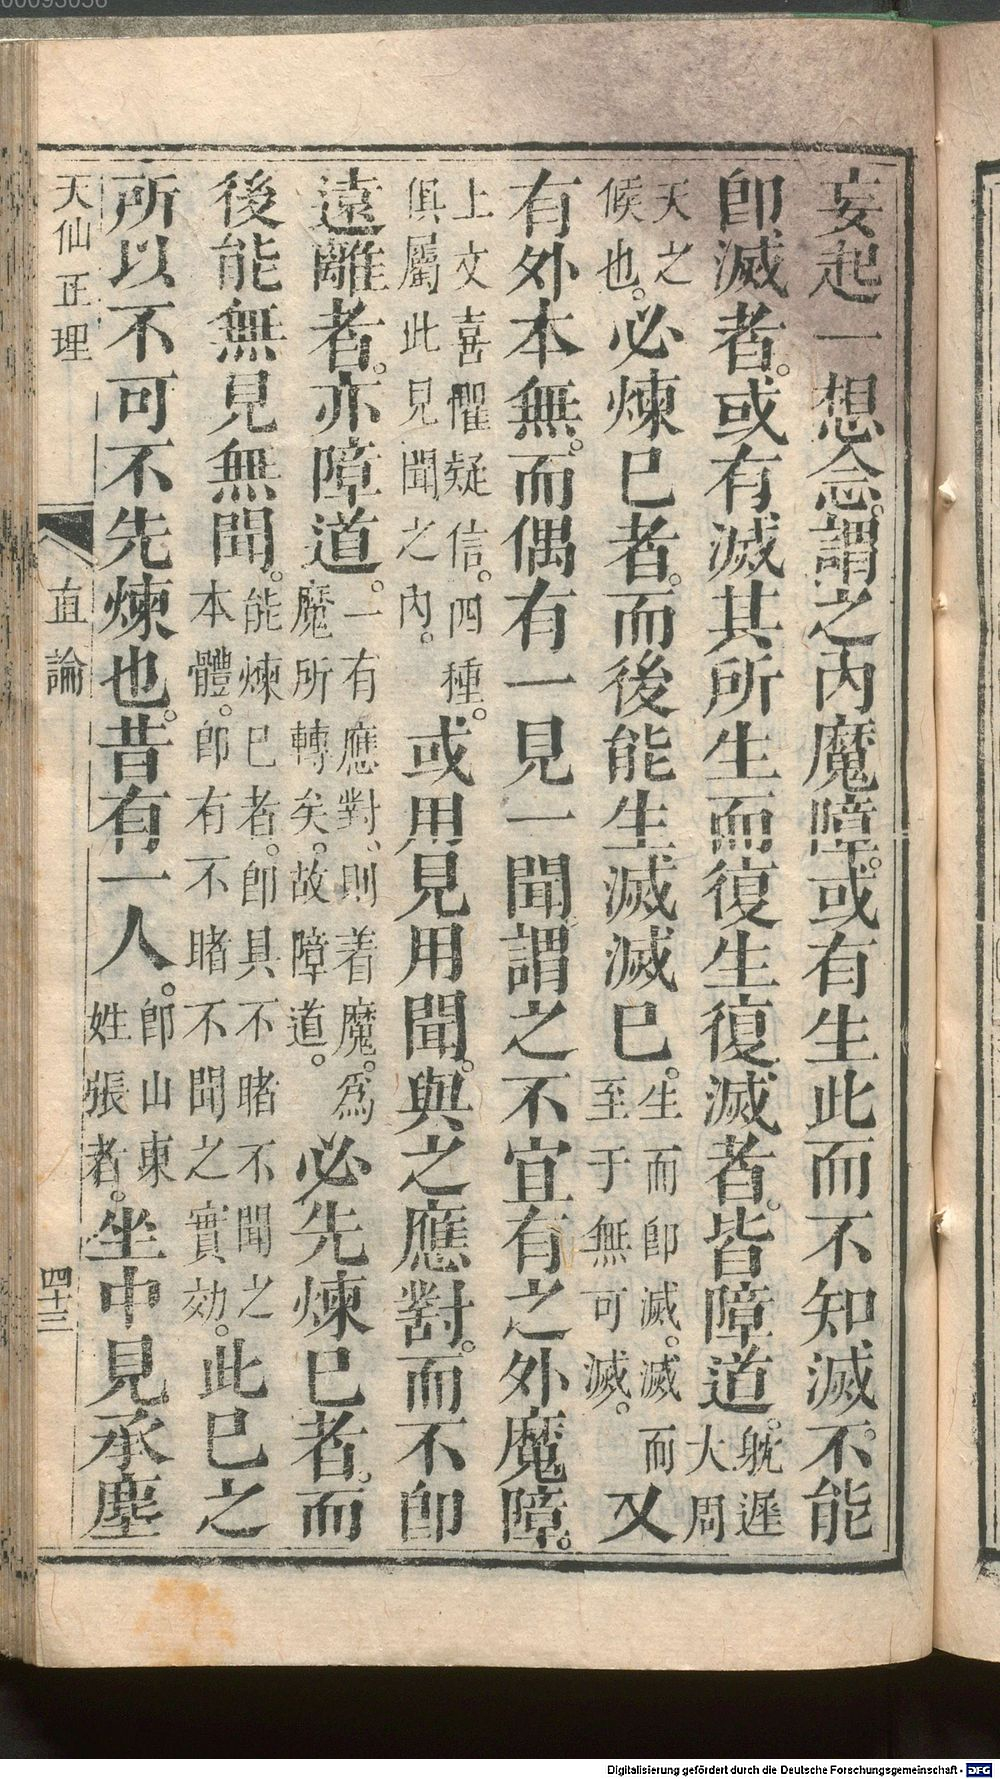 妄起一想念。謂之內魔障。或有生此而不知滅。不能
卽滅者。或有滅其所生而復生復滅者。皆障道。躭遲大周
天之候也。必煉巳者。而後能生滅滅巳。生而卽滅。滅而至于無可滅。又
有外本無。而偶有一見一聞謂之不宜有之外魔障。
上文喜懼疑信。四種。俱屬此見聞之內。或用見用聞。與之應對。而不卽
遠離者。亦障道。一有應對、則着魔。爲魔所轉矣。故障道。必先煉巳者。而
後能無見無聞。能煉巳者。卽具不睹不聞之本體。卽有不睹不聞之實効。此巳之
所以不可不先煉也。昔有一人。卽山東姓張者。坐中見承塵
天仙正理 直論 四十三
00093056
Digitalisierung gefördert durch die Deutsche Forschungsgemeinschaft - DFG